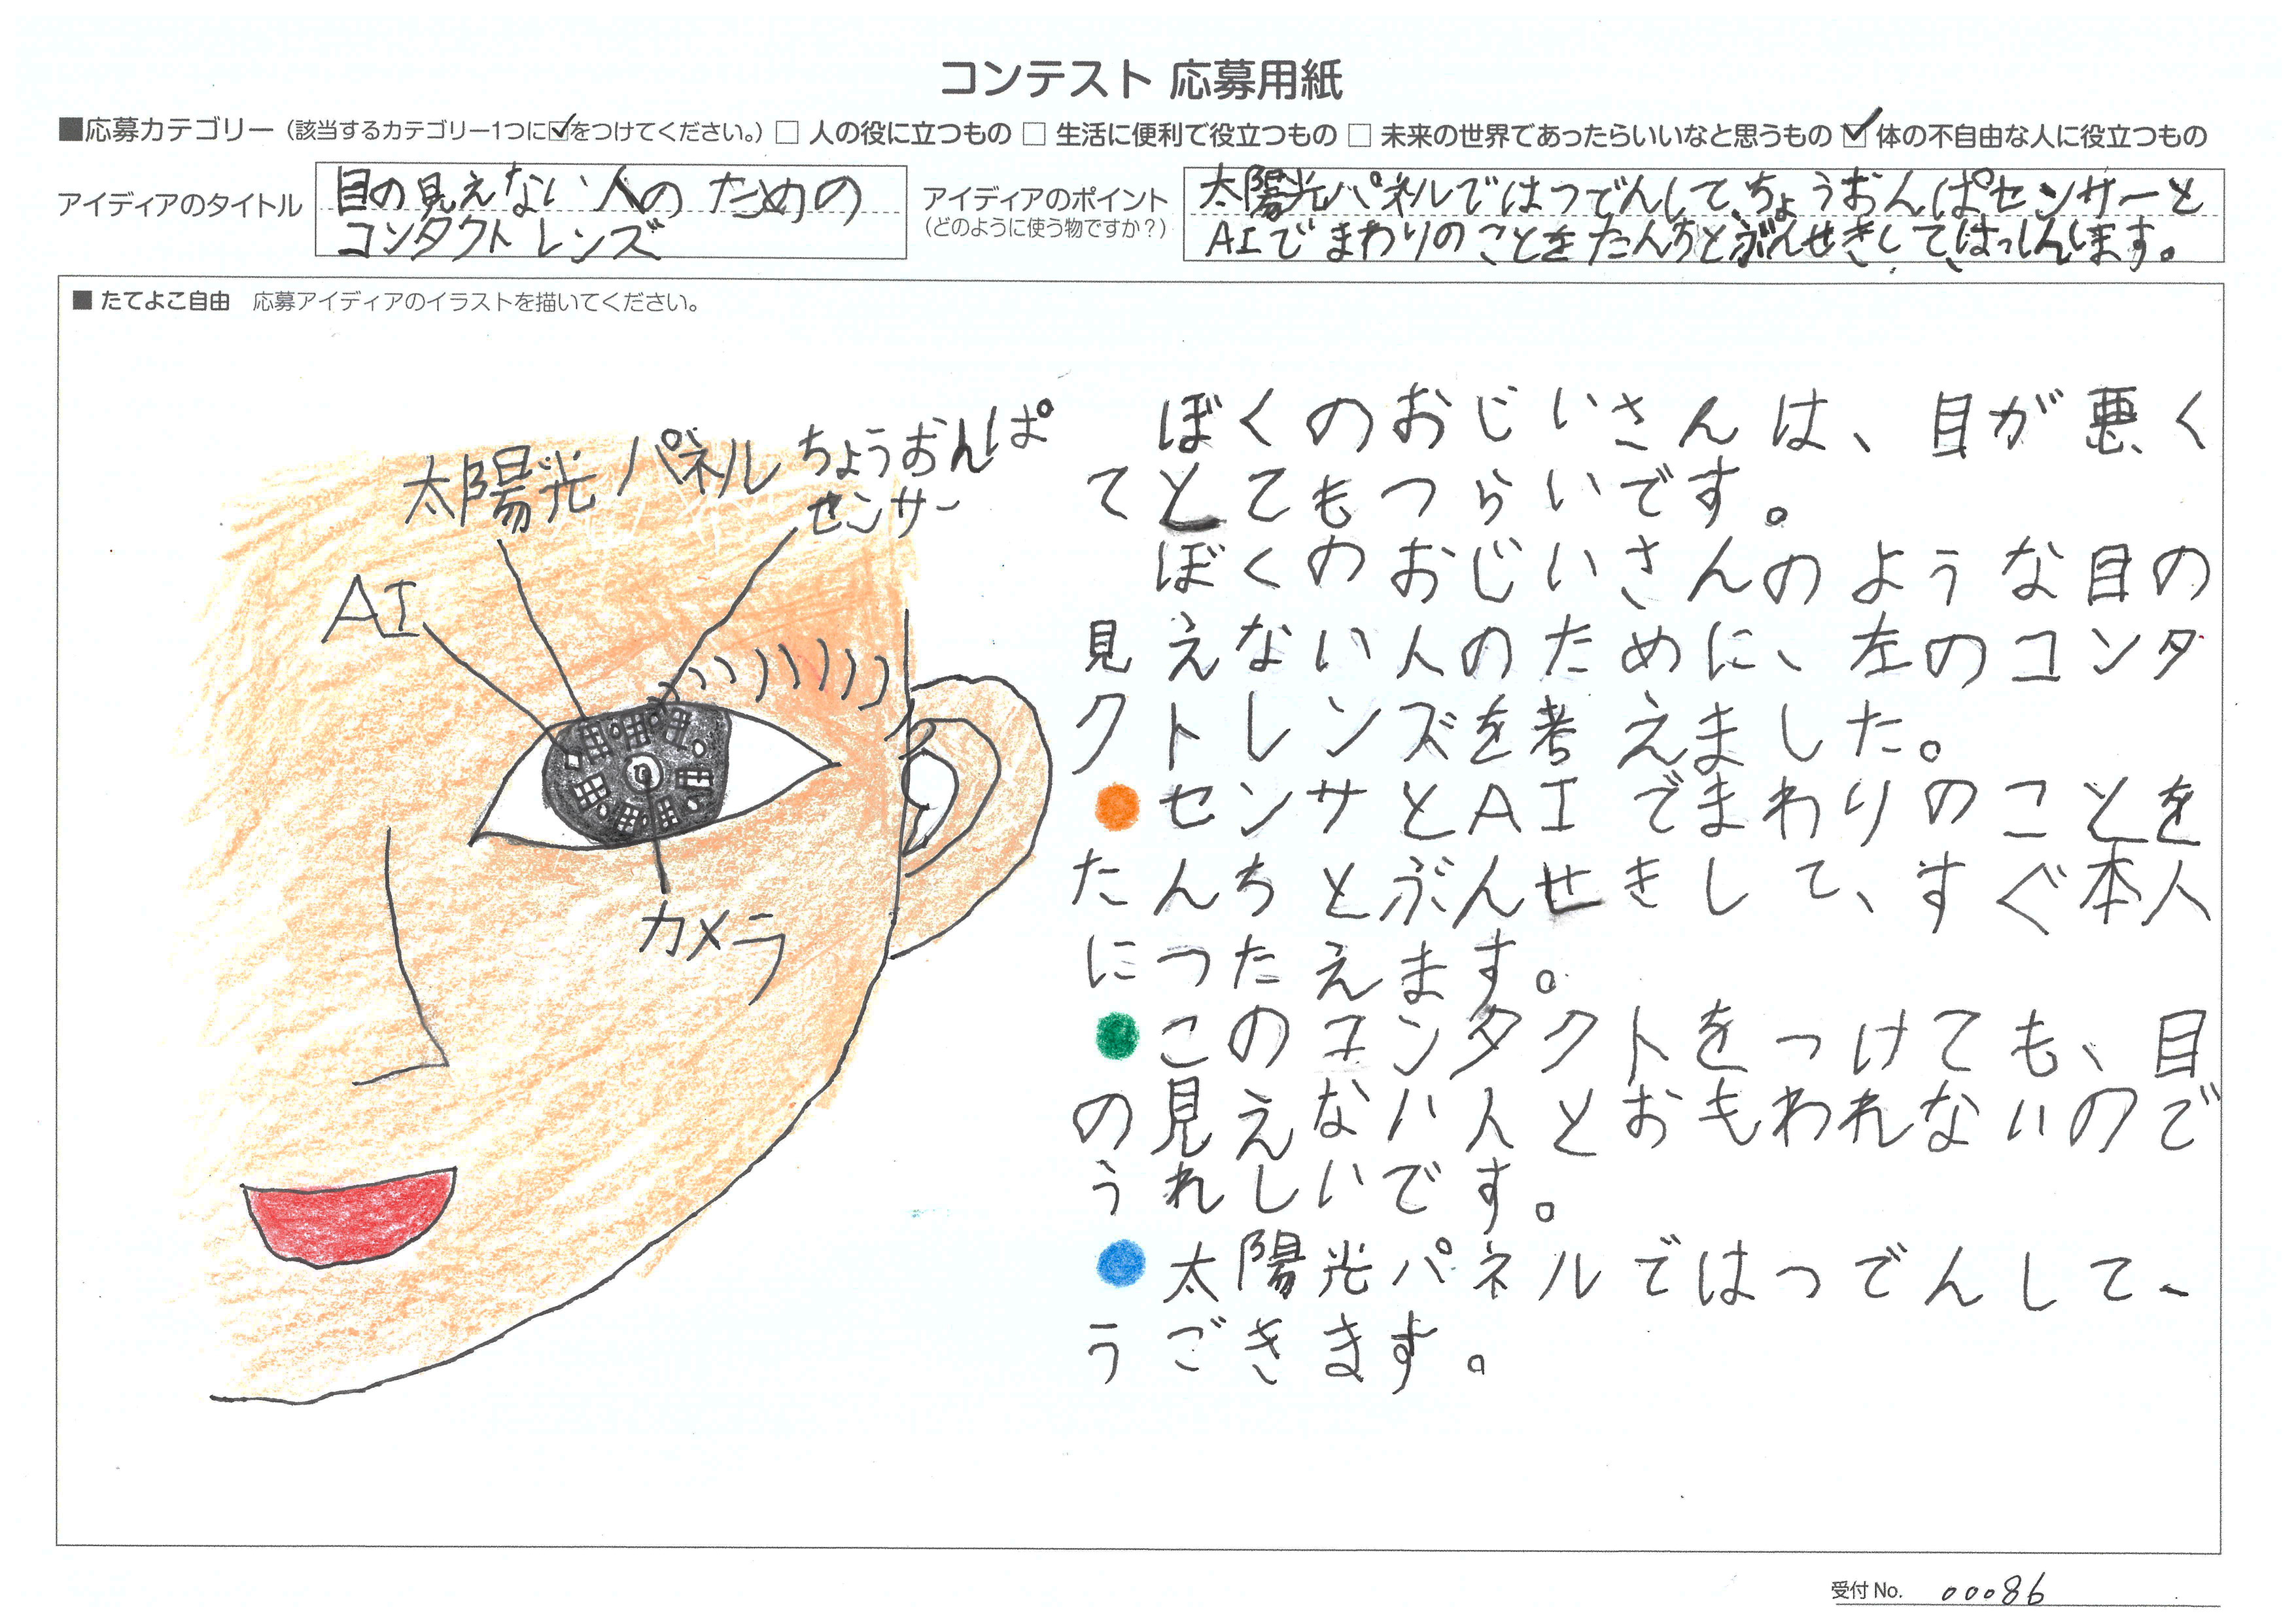 コンテスト 応募用紙
■応募カテゴリー（該当するカテゴリー1つに☑をつけてください。）□ 人の役に立つもの □ 生活に便利で役立つもの □ 未来の世界であったらいいなと思うもの ☑ 体の不自由な人に役立つもの
アイディアのタイトル
目の見えない人のための
コンタクトレンズ
アイディアのポイント
（どのように使う物ですか？）
太陽光パネルではつでんして、ちょうおんぱセンサーと
AIでまわりのことをたんちとぶんせきして、はっしんします。
■ たてよこ自由 応募アイディアのイラストを描いてください。
太陽光パネル
ちょうおんぱ
センサー
AI
カメラ
ぼくのおじいさんは、目が悪く
てとてもつらいです。
ぼくのおじいさんのような目の
見えない人のために、左のコンタ
クトレンズを考えました。
●センサとAIでまわりのことを
たんちとぶんせきして、すぐ本人
につたえます。
●このコンタクトをつけても、目
の見えない人とおもわれないので
うれしいです。
●太陽光パネルではつでんして、
うごきます。
受付No. 00086